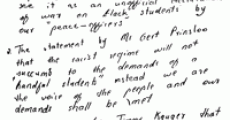 see it as an unofficial
of war on black students by
our "peace-officers".
2. The statement by Mr Gert Prinsloo
that the racist regime will not
"succumb to the demands of a
handful students" instead we are
the voice of the people and own
demands shall be met
Kruger that